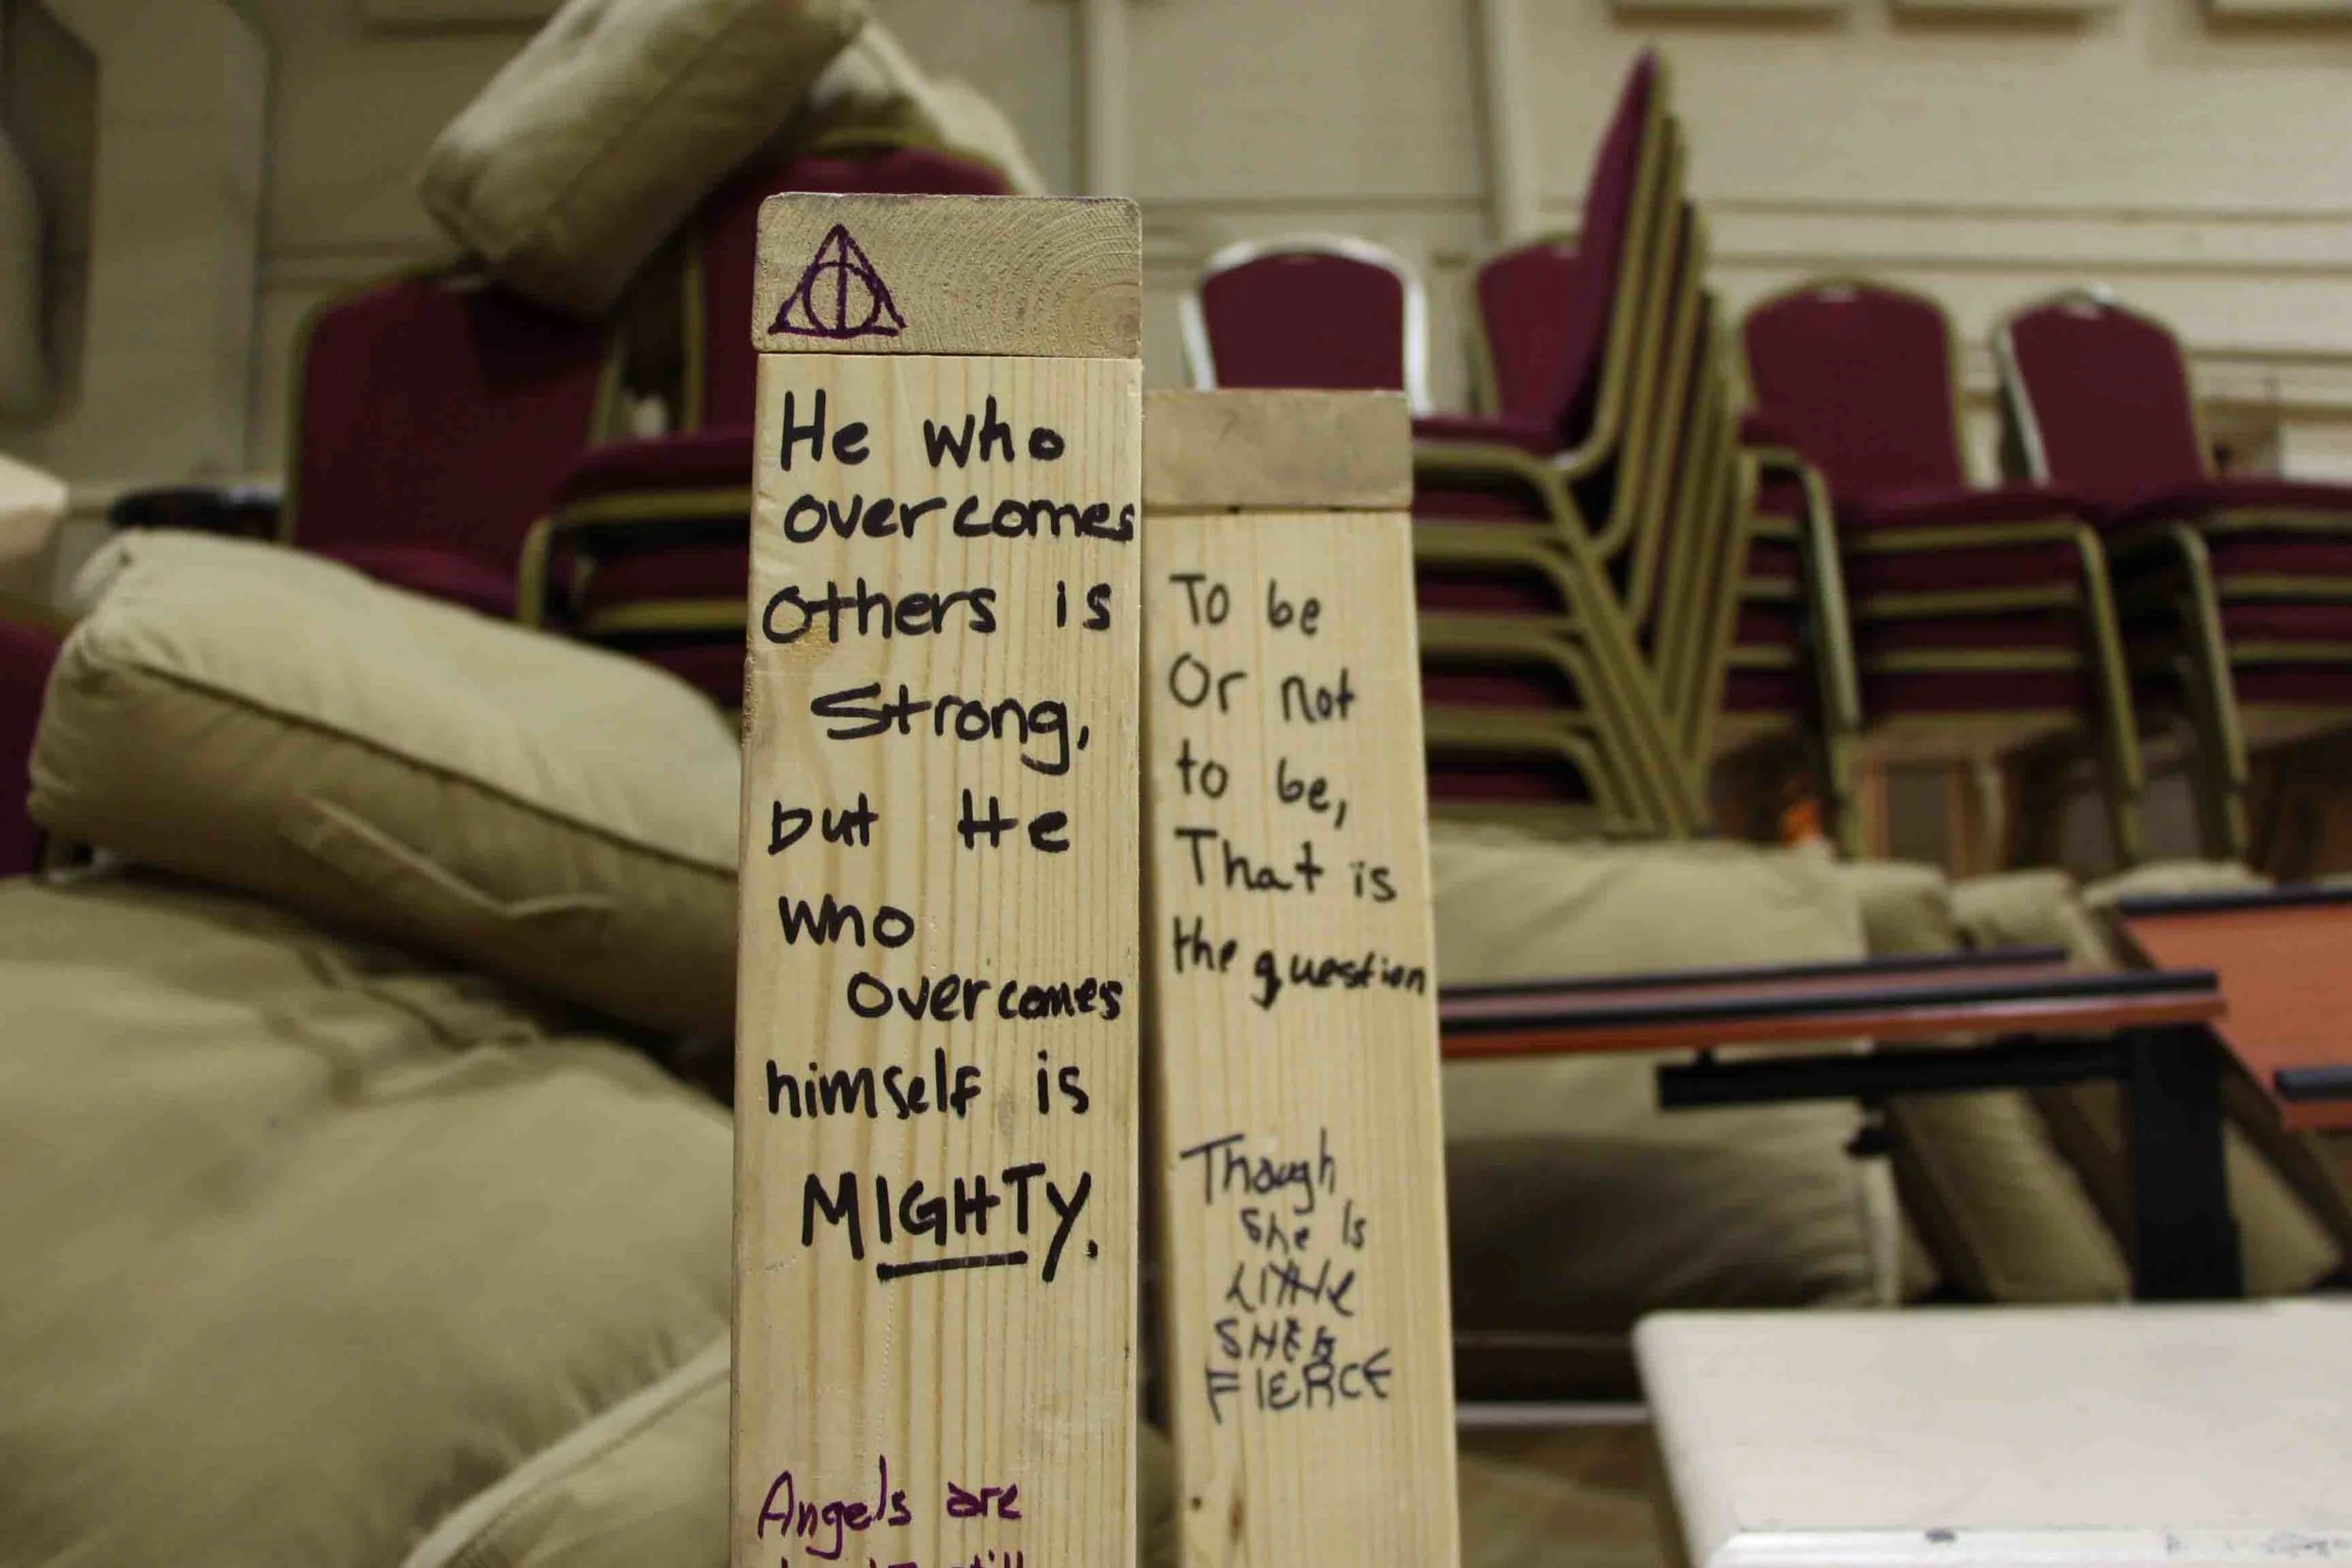 He who
overcomes
Others is
Strong,
but He
who
overcomes
himself is
MIGHTY.
Angels are
still
To be
Or not
to be,
That is
the question
Though
She Is
LITTLE
SHE
FIERCE